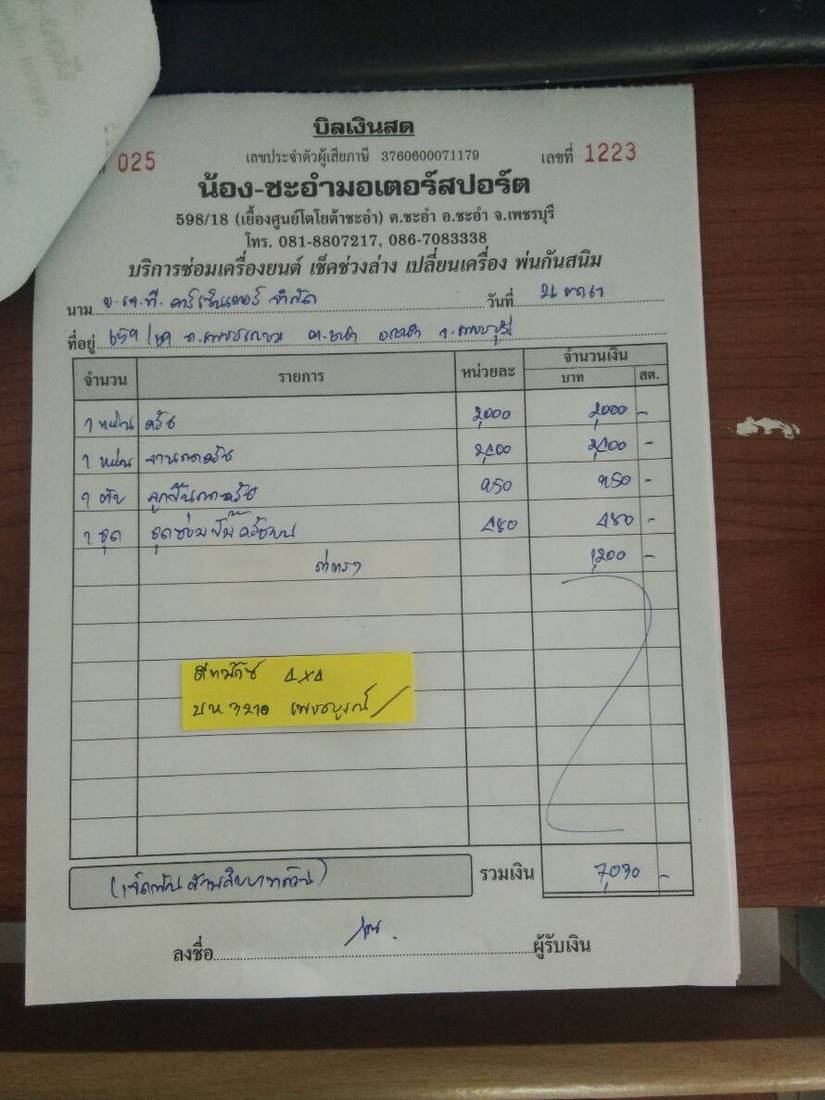 บิลเงินสด
025
เลขประจำตัวผู้เสียภาษี 3760600071179
เลขที่ 1223
น้อง-ชะอำมอเตอร์สปอร์ต
598/18 (เยื้องศูนย์โตโยต้าชะอำ) ต.ชะอำ อ.ชะอำ จ.เพชรบุรี
โทร. 081-8807217, 086-7083338
บริการซ่อมเครื่องยนต์ เช็คช่วงล่าง เปลี่ยนเครื่อง พ่นกันสนิม
นาม คาร์เซ็นเตอร์ จำกัด วันที่ 26
ที่อยู่ ถ.เพชรเกษม ต.ชะอำ อ.ชะอำ จ.เพชรบุรี
จำนวน รายการ หน่วยละ จำนวนเงิน
บาท สต.
1 แผ่น ครัช 2,000 2,000 -
1 แผ่น จานกดครัช 2,400 2,400 -
1 ตับ ลูกปืนกดครัช 950 950 -
1 ชุด ชุดซ่อมปั๊มครัชบน 480 480 -
ค่าแรง 1,200 -
ดีแม็กซ์ 4x4
บห เพชรบูรณ์
(เจ็ดพันสามสิบบาทถ้วน) รวมเงิน 7,030 -
ลงชื่อ ผู้รับเงิน